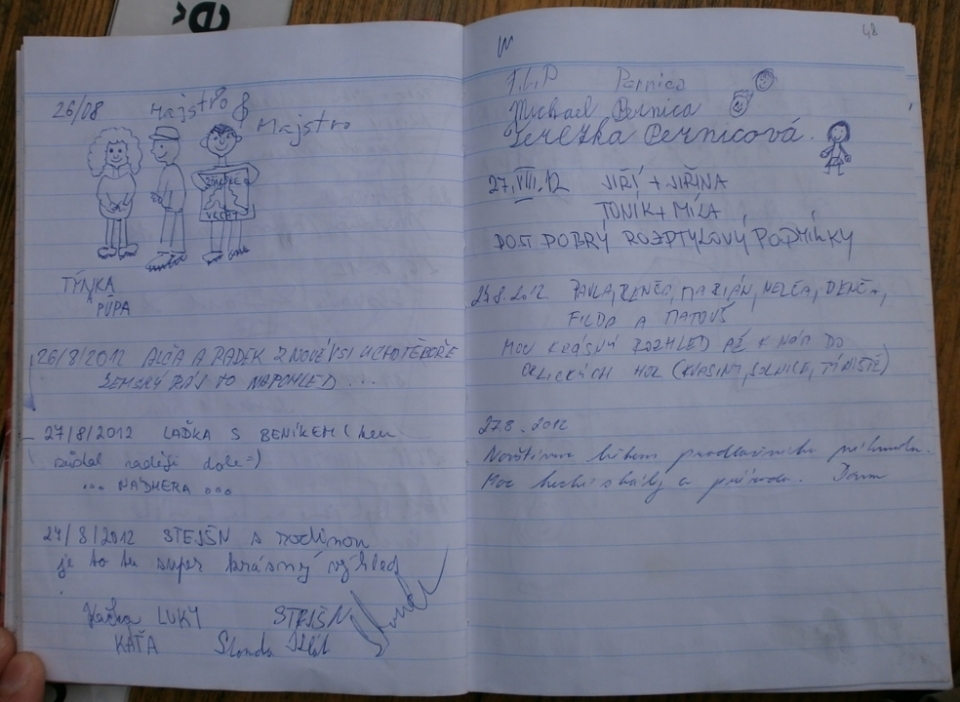 26/08
Majstro &
Majstro
TÝNKA
A
PÚPA
26/8/2012 ALČA A RADEK Z NOVÉ VSI U CHOTĚBOŘE
ZEMSKÝ RÁJ TO NAPOHLED ...
27/8/2012 LAĎKA S BENÍKEM (ten
raději dole =)
... NÁDHERA ...
27/8/2012 STEJŠN A rodinou
je to tu super krásný výhled
Kačka LUKY STEJŠN
KAŤA
48
T.L.P Pernica
Michael Pernica
Terezka Pernicová.
27.VIII.12 JIŘÍ + JIŘINA
TONÍK + MÍLA
DOST DOBRÝ ROZPTYLOVÝ PODMÍNKY
27.8.2012 PAVLA, RENČO, MARIÁN, NELČA, DENČA,
FILDA A MATOUŠ
MOC KRÁSNÝ ROZHLED AŽ K NÁM DO
ORLICKÝCH HOR (KVASINY, SOLNICE, TÝNIŠTĚ)
27.8.2012
Navštíveno během
Moc hezké skály a příroda.